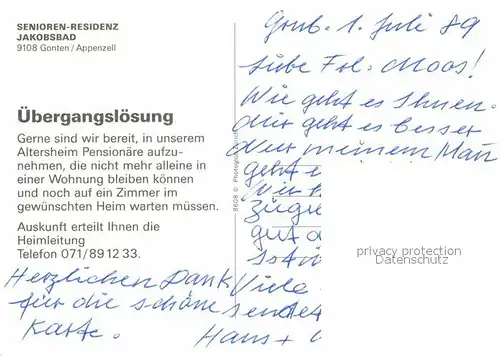 SENIOREN-RESIDENZ
JAKOBSBAD
9108 Gonten/Appenzell
Übergangslösung
Gerne sind wir bereit, in unserem
Altersheim Pensionäre aufzu-
nehmen, die nicht mehr alleine in
einer Wohnung bleiben können
und noch auf ein Zimmer im
gewünschten Heim warten müssen.
Auskunft erteilt Ihnen die
Heimleitung
Telefon 071/89 12 33.
Herzlichen Dank
für die schöne
Karte.
Grub. 1. Juli 89
Liebe Frl. Moos!
Wie geht es Ihnen.
Mir geht es besser
Nur meinem Mann
geht e
Wir
zügu
gut
Viele
sendet
Hans +
privacy protection
Datenschutz